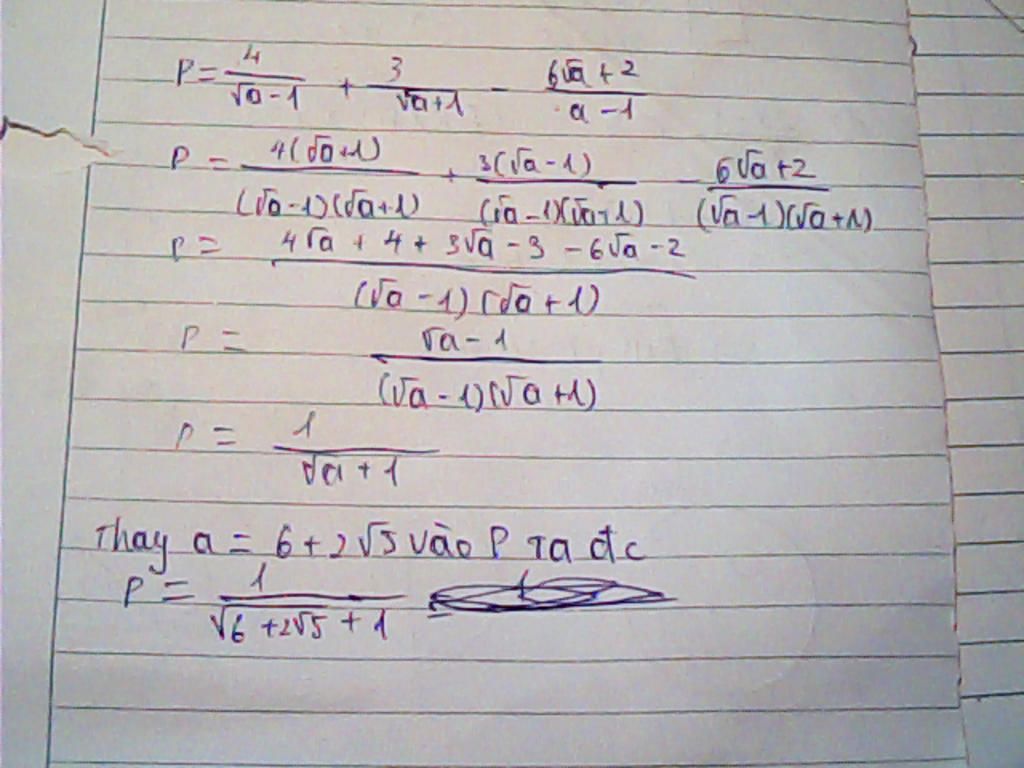 P = 4/(√a - 1) + 3/(√a + 1) - (6√a + 2)/(a - 1)
P = 4(√a + 1)/((√a - 1)(√a + 1)) + 3(√a - 1)/((√a - 1)(√a + 1)) - (6√a + 2)/((√a - 1)(√a + 1))
P = (4√a + 4 + 3√a - 3 - 6√a - 2)/((√a - 1)(√a + 1))
P = (√a - 1)/((√a - 1)(√a + 1))
P = 1/(√a + 1)
Thay a = 6 + 2√5 vào P ta đc
P = 1/(√(6 + 2√5) + 1)